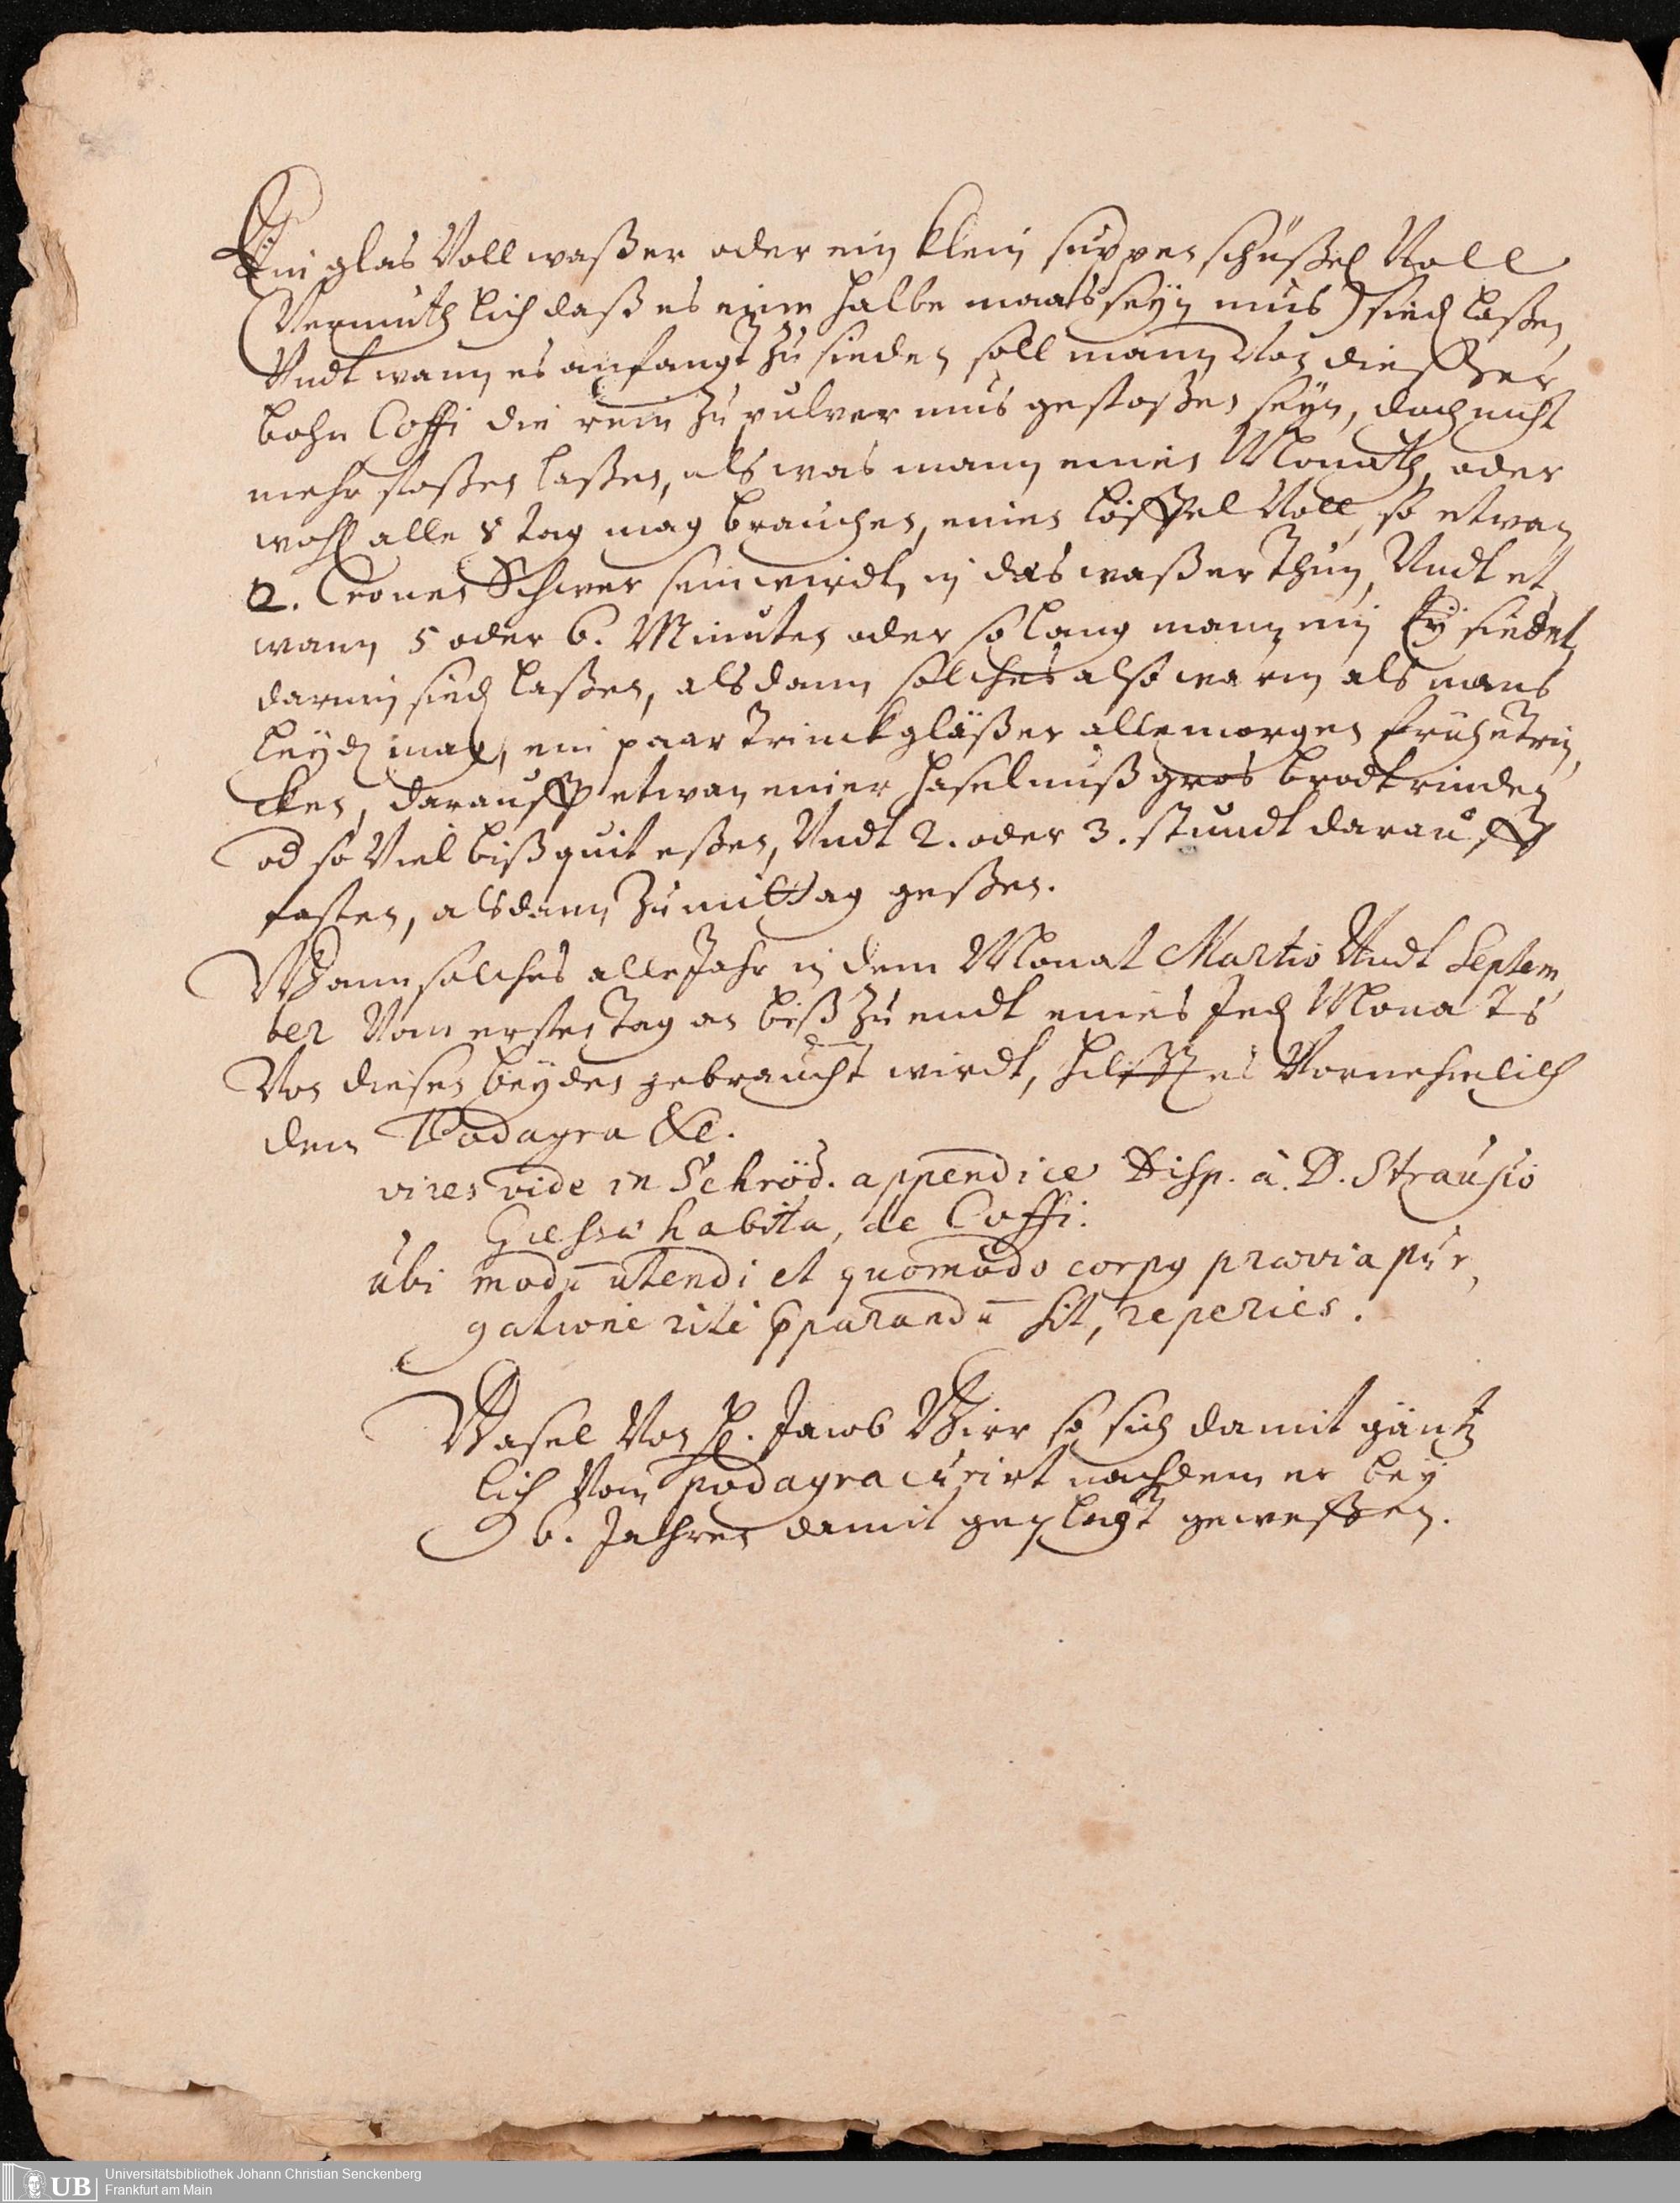 Ein glas Voll waßer oder ein klein suppen schüßel Voll
(Vermuthlich daß es eine halbe maas seyn mus) sied laßen
Undt wann es anfangt zu sieden soll mann Von dießer
bohn Coffi die rein zu pulver mus gestoßen seyn, doch nicht
mehr stoßen laßen, als was mann einen Monath, oder
wohl alle 8 tag mag brauchen, einen löffel Voll, so etwan
2. Cronen Schwer sein wirdt, in das waßer thun, Undt et
wann 5 oder 6. Minuten oder so lang mann ein Ey siedet
darein sied laßen, alsdann solches also warm als mans
leyd mag, ein paar trinckgläßer alle morgen fruhe trin,
cken, darauff etwan einer haselnuß gros brodt rinden
od so Viel bißquit eßen, Undt 2. oder 3. stundt darauff
fasten, alsdann zu mittag geßen.
Wann solches alle Jahr in dem Monat Martio Undt Septem,
ber Vom ersten tag an biß zu endt eines Jed Monats
Von diesen beyden gebraucht wirdt, hilfft es Vornehmlich
dem Podagra &c.
vires vide in Schröd. appendice Disp. à D. Strausio
Giessæ habita, de Coffi.
ubi modū utendi et quomodo corpꝰ prævia pur,
gatione rite ꝓparandū sit, reperies.
Basel Von H. Jacob Birr so sich damit gäntz
lich Vom podagra curirt nachdem er bey
6. Jahren damit geplagt geweßen.
Universitätsbibliothek Johann Christian Senckenberg
Frankfurt am Main
UB